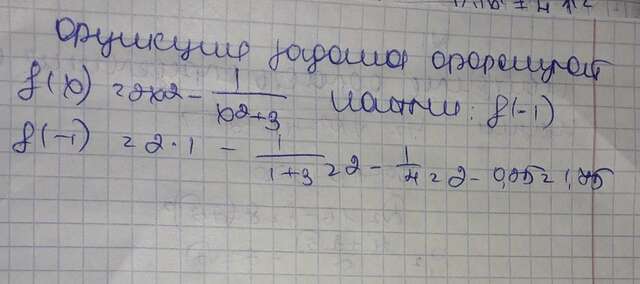 Функция задана формулой
f(x) = 2x2 - 1/x2+3 найти: f(-1)
f(-1) = 2·1 - 1/1+3 = 2 - 1/4 = 2 - 0,25 = 1,75